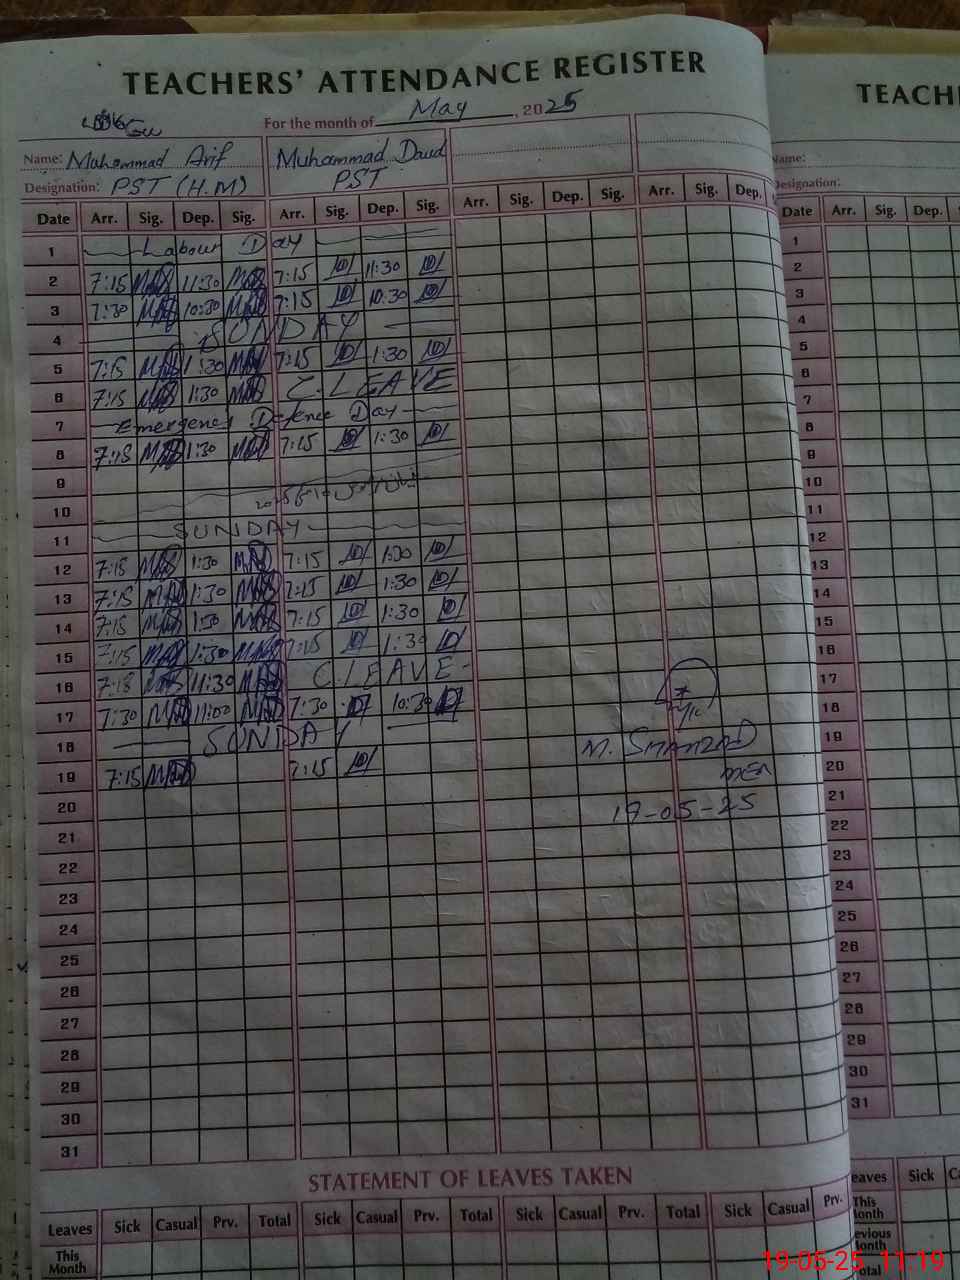 TEACHERS' ATTENDANCE REGISTER
For the month of May, 2025
Name: Muhammad Arif Muhammad Daud
Designation: PST (H.M) PST
Date Arr. Sig. Dep. Sig. Arr. Sig. Dep. Sig. Arr. Sig. Dep. Sig. Arr. Sig. Dep.
1 Labour Day
2 7:15 11:30 7:15 11:30
3 7:30 10:30 7:15 10:30
4 SUNDAY
5 7:15 1:30 7:15 1:30
6 7:15 1:30 C.LEAVE
7 Emergency Defence Day
8 7:15 1:30 7:15 1:30
9
10
11 SUNDAY
12 7:15 1:30 7:15 1:30
13 7:15 1:30 7:15 1:30
14 7:15 1:30 7:15 1:30
15 7:15 1:30 7:15 1:30
16 7:15 11:30 C.LEAVE
17 7:30 11:00 7:30 10:30
18 SUNDAY
19 7:15 7:15
20
21
22
23
24
25
26
27
28
29
30
31
M. SHAHZAD
MEA
19-05-25
STATEMENT OF LEAVES TAKEN
Leaves Sick Casual Prv. Total Sick Casual Prv. Total Sick Casual Prv. Total Sick Casual Prv.
This Month
TEACH
Name:
Designation:
Date Arr. Sig. Dep.
1
2
3
4
5
6
7
8
9
10
11
12
13
14
15
16
17
18
19
20
21
22
23
24
25
26
27
28
29
30
31
eaves Sick
This Month
evious Month
otal
19-05-25 11:19